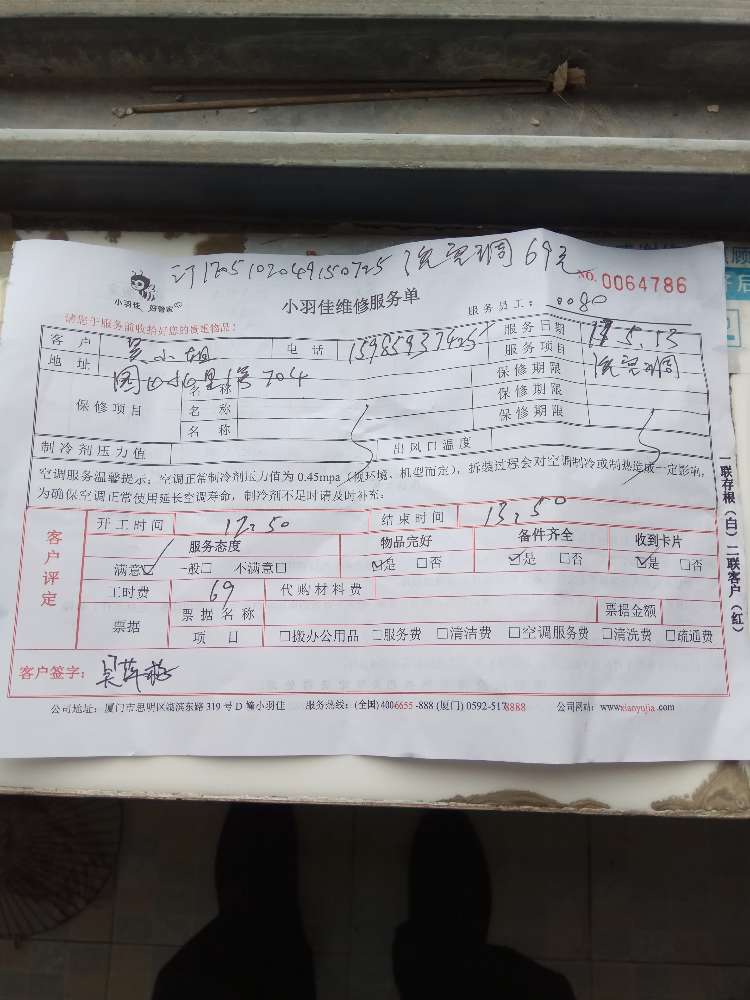 订1705102049150725 洗空调 69元
NO. 0064786
小羽佳 好管家
小羽佳维修服务单
服务员工: 0080
请您于服务前收拾好您的贵重物品!
客户 吴小姐 电话 15985937425 服务日期 17.5.13
地址 服务项目 洗空调
保修项目 名称 保修期限
名称 保修期限
名称 保修期限
制冷剂压力值 出风口温度
空调服务温馨提示: 空调正常制冷剂压力值为 0.45mpa (视环境、机型而定), 拆装过程会对空调制冷或制热造成一定影响,
为确保空调正常使用延长空调寿命, 制冷剂不足时请及时补充.
客户评定
开工时间 12:50 结束时间 13:50
服务态度 物品完好 备件齐全 收到卡片
满意☑ 一般□ 不满意□ ☑是 □否 ☑是 □否 ☑是 □否
工时费 69 代购材料费
票据 票据名称 票据金额
项目 □搬办公用品 □服务费 □清洁费 □空调服务费 □清洗费 □疏通费
客户签字:
公司地址: 厦门市思明区湖滨东路 319 号 D 幢小羽佳 服务热线: (全国) 4006655 -888 (厦门) 0592-5178888 公司网站: www.xiaoyujia .com
一联存根 (白) 二联客户 (红)